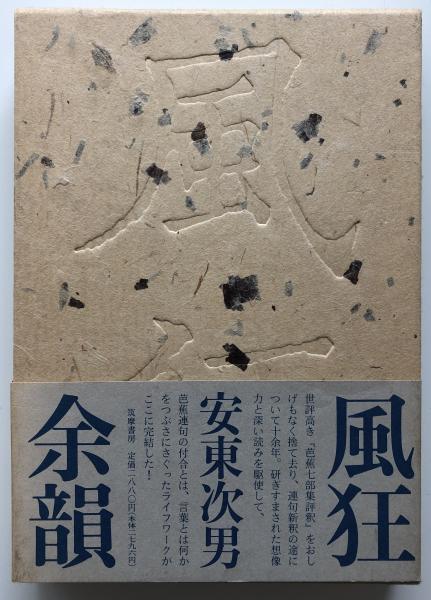 風
風狂
世評高き『芭蕉七部集評釈』をおし
げもなく捨て去り、連句新釈の途に
ついて十余年。研ぎすまされた想像
力と深い読みを駆使して、
安東次男
芭蕉連句の付合とは、言葉とは何か
をつぶさにさぐったライフワークが
ここに完結した!
筑摩書房 定価二八八〇円(本体二七九六円)
余韻